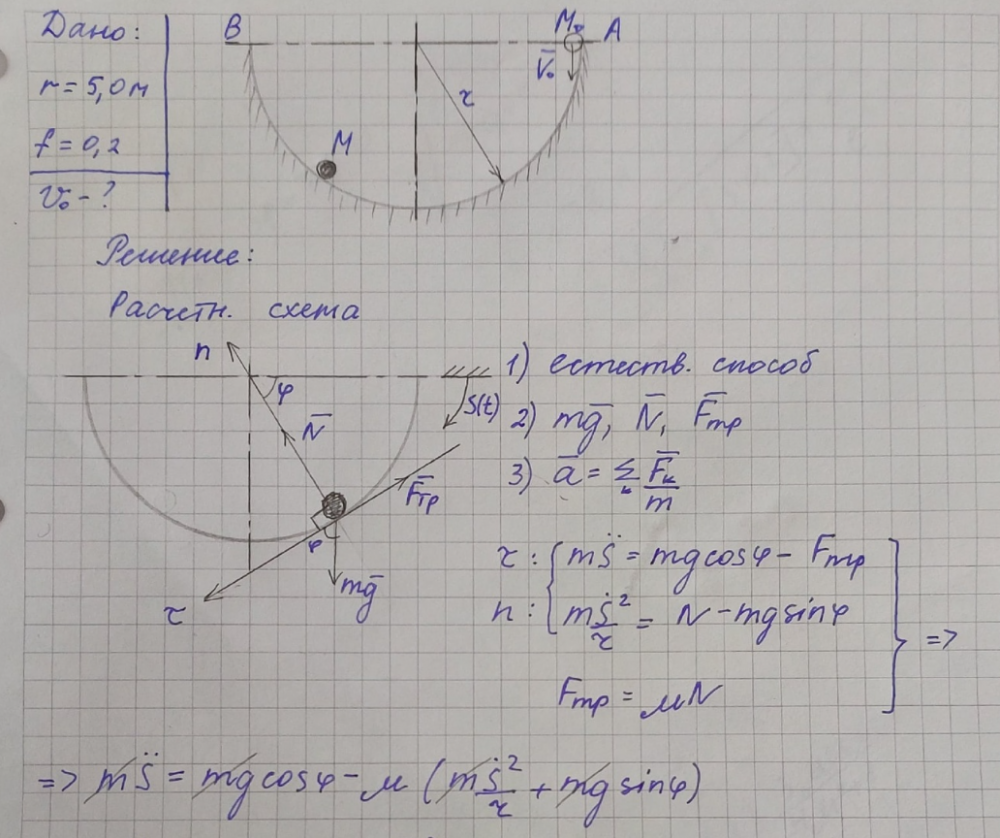 Дано:
r = 5,0 м
f = 0,2
V₀ - ?
B
M₀ A
V̄₀
r
M
Решение:
Расчетн. схема
n
φ
N̄
S(t)
F̄тр
φ
mḡ
τ
1) естеств. способ
2) mḡ, N̄, F̄тр
3) ā = Σₖ F̄ₖ/m
τ: { mS̈ = mg cosφ - Fтр
n: { mṠ²/r = N - mg sinφ } =>
Fтр = μN
=> mS̈ = mg cosφ - μ (mṠ²/r + mg sinφ)